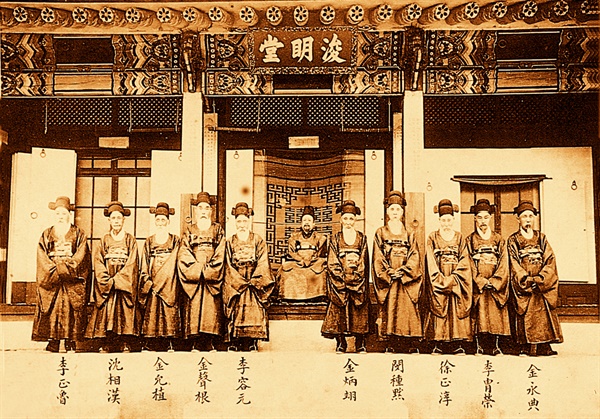 浚明堂
金永典
李胄榮
徐正淳
閔種默
金炳翊
李容元
金聲根
金允植
沈相漢
李正魯